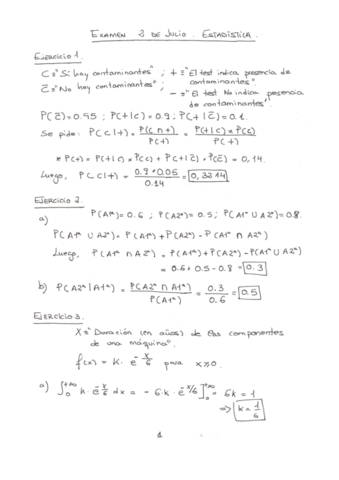 EXAMEN 3 DE JULIO. ESTADÍSTICA.
Ejercicio 1
C≡"Sí hay contaminantes" ; +≡"El test indica presencia de contaminantes"
C̄≡"No hay contaminantes" ; -≡"El test No indica presencia de contaminantes"
P(C̄)=0.95 ; P(+|C)=0.9 ; P(+|C̄)=0.1.
Se pide: P(C|+) = P(C∩+) / P(+) = P(+|C)×P(C) / P(+)
* P(+) = P(+|C)×P(C) + P(+|C̄)×P(C̄) = 0,14.
Luego, P(C|+) = 0.9*0.05 / 0.14 = 0,3214
EJERCICIO 2.
a) P(A1ª)=0.6 ; P(A2ª)=0.5 ; P(A1ª∪A2ª)=0.8
P(A1ª∪A2ª)= P(A1ª)+P(A2ª)-P(A1ª∩A2ª)
Luego, P(A1ª∩A2ª) = P(A1ª)+P(A2ª)-P(A1ª∪A2ª)
= 0.6+0.5-0.8 = 0.3
b) P(A2ª|A1ª) = P(A2ª∩A1ª) / P(A1ª) = 0.3 / 0.6 = 0.5
EJERCICIO 3.
X≡"Duración (en años) de los componentes
de una máquina"
f(x) = k · e^(-x/6) para x≥0
a) ∫₀^(+∞) k·e^(-x/6) dx = -6·k·e^(-x/6)]₀^(+∞) = 6k = 1
⇒ k = 1/6
1